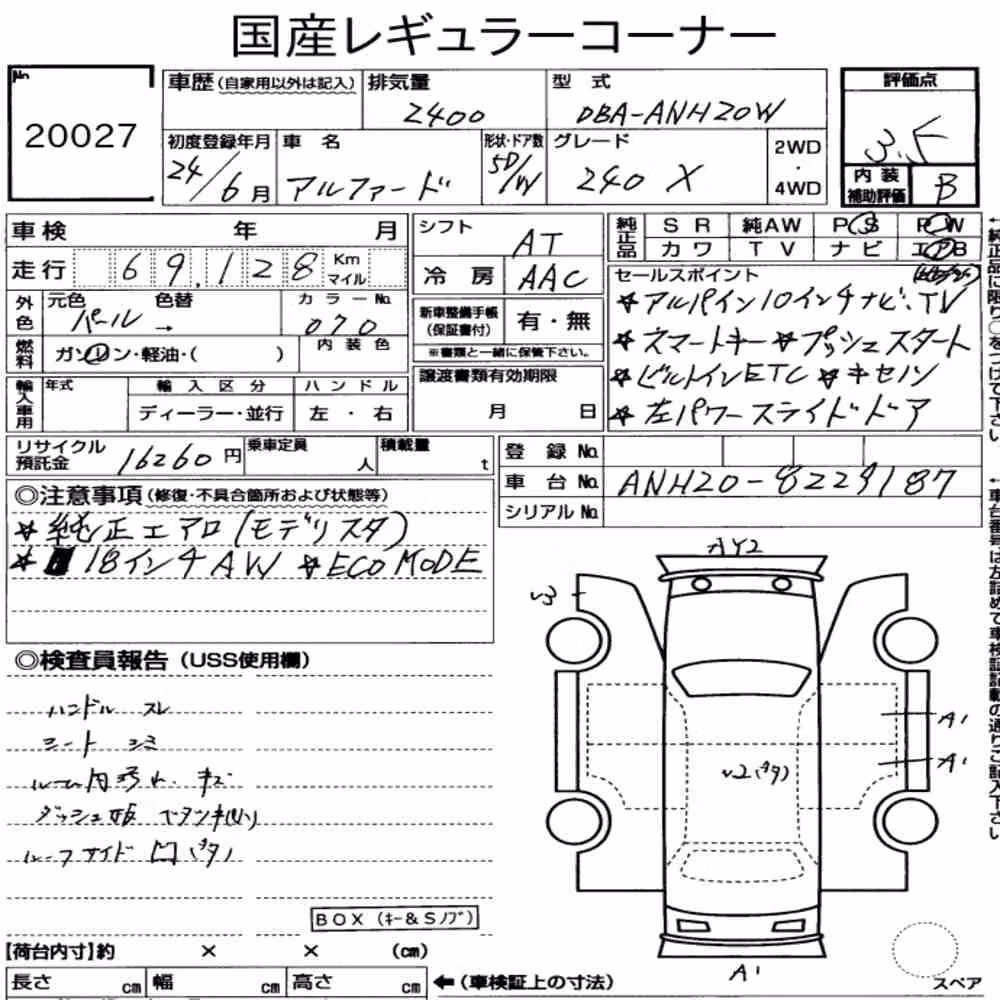 国産レギュラーコーナー
No.
20027
車歴(自家用以外は記入)
排気量
2400
型 式
DBA-ANH20W
評価点
3.5
初度登録年月
24/6月
車 名
アルファード
形状・ドア数
5D/W
グレード
240 X
2WD
・
4WD
内 装
補助評価
B
車検 年 月
走行 69,128 Km
マイル
シフト
AT
冷 房 AAC
純正品
S R 純AW P S P W
カ ワ T V ナ ビ エアB
セールスポイント
☆アルパイン10インチナビ・TV
☆スマートキー☆プッシュスタート
☆ビルトインETC ☆キセノン
☆左パワースライドドア
←純正品に限り○をつけて下さい。
外色
元色 色替 カラーNo.
パール → 070
燃料
ガソリン・軽油・( )
内 装 色
新車整備手帳
(保証書付)
有・無
※書類と一緒に保管下さい。
輸入車用
年式
輸 入 区 分
ハ ン ド ル
ディーラー・並行
左 ・ 右
譲渡書類有効期限
月 日
リサイクル
預託金
16260円
乗車定員
人
積載量
t
登 録 No.
車 台 No. ANH20-8229187
シリアル No.
←車台番号は左詰めで車検証記載の通りご記入下さい。
◎注意事項(修復・不具合箇所および状態等)
☆純正エアロ(モデリスタ)
☆18インチAW ☆ECO MODE
◎検査員報告(USS使用欄)
ハンドル スレ
シート シミ
ルーム内汚れ、キズ
ダッシュ板
ルーフサイド凹
BOX(キー&Sノブ)
AY2
A1
A1
A1
スペア
【荷台内寸】約 × × (cm)
長さ cm 幅 cm 高さ cm ←(車検証上の寸法)